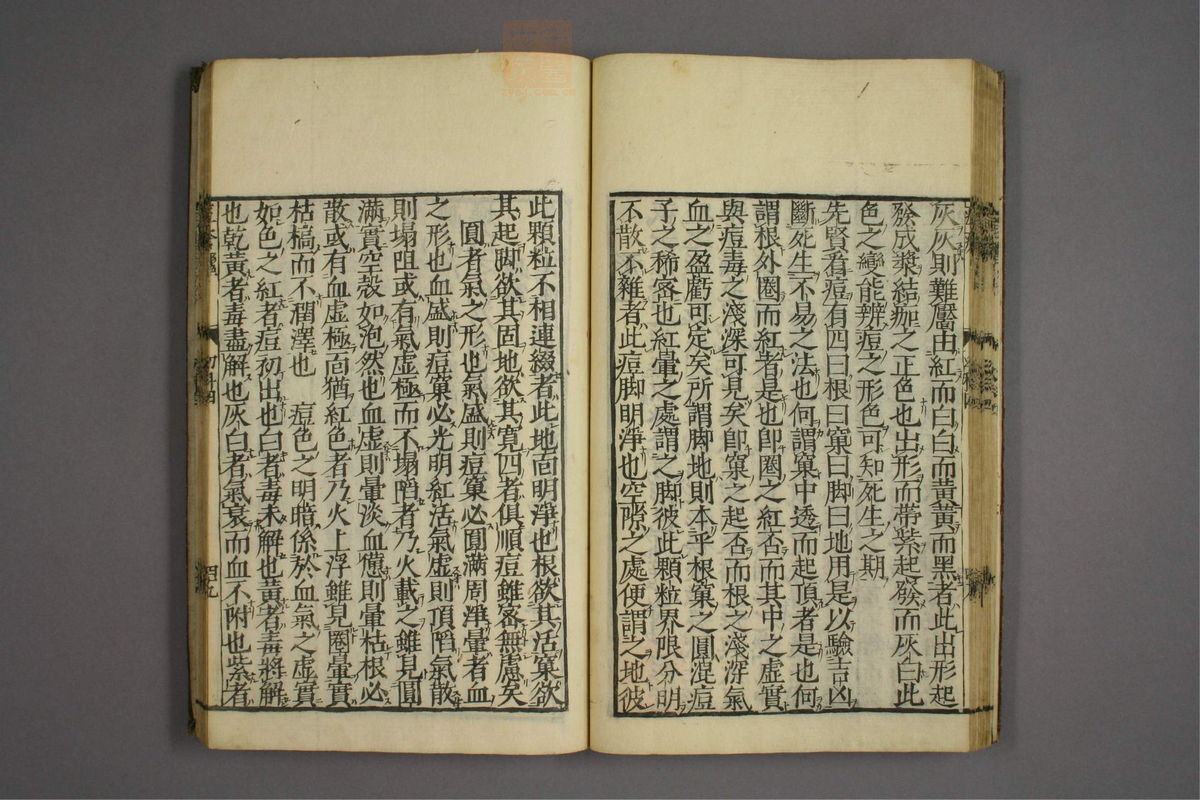 灰灰則難黶由紅而白白而黃黃而黑者此出形起
發成漿結痂之正色也出形而帶紫起發而灰白此
色之變能辨痘之形色可知死生之期
先賢看痘有四曰根曰窠曰脚曰地用是以驗吉凶
斷死生不易之法也何謂窠中透而起頂者是也何
謂根外圈而紅者是也卽圈之紅否而其中之虛實
與痘毒之淺深可見矣卽窠之起否而根之淺深氣
血之盈虧可定矣所謂脚地則本乎根窠之圓混痘
子之稀宻也紅暈之處謂之脚彼此顆粒界限分明
不散不雜者此痘脚明淨也空隙之處便謂之地彼
此顆粒不相連綴者此地靣明淨也根欲其活窠欲
其起脚欲其固地欲其寬四者俱順痘雖宻無慮矣
圓者氣之形也氣盛則痘窠必圓滿周淨暈者血
之形也血盛則痘窠必光明紅活氣虛則頂陷氣散
則塌阻或有氣虛極而不塌陷者乃火載之雖見圓
滿實空殼如泡然也血虛則暈淡血憊則暈枯根必
散或有血虛極靣猶紅色者乃火上浮雖見圈暈實
枯槁而不潤澤也 痘色之明暗係於血氣之虛實
如色之紅者痘初出也白者毒未解也黃者毒將解
也乾黃者毒盡解也灰白者氣衰而血不附也紫者